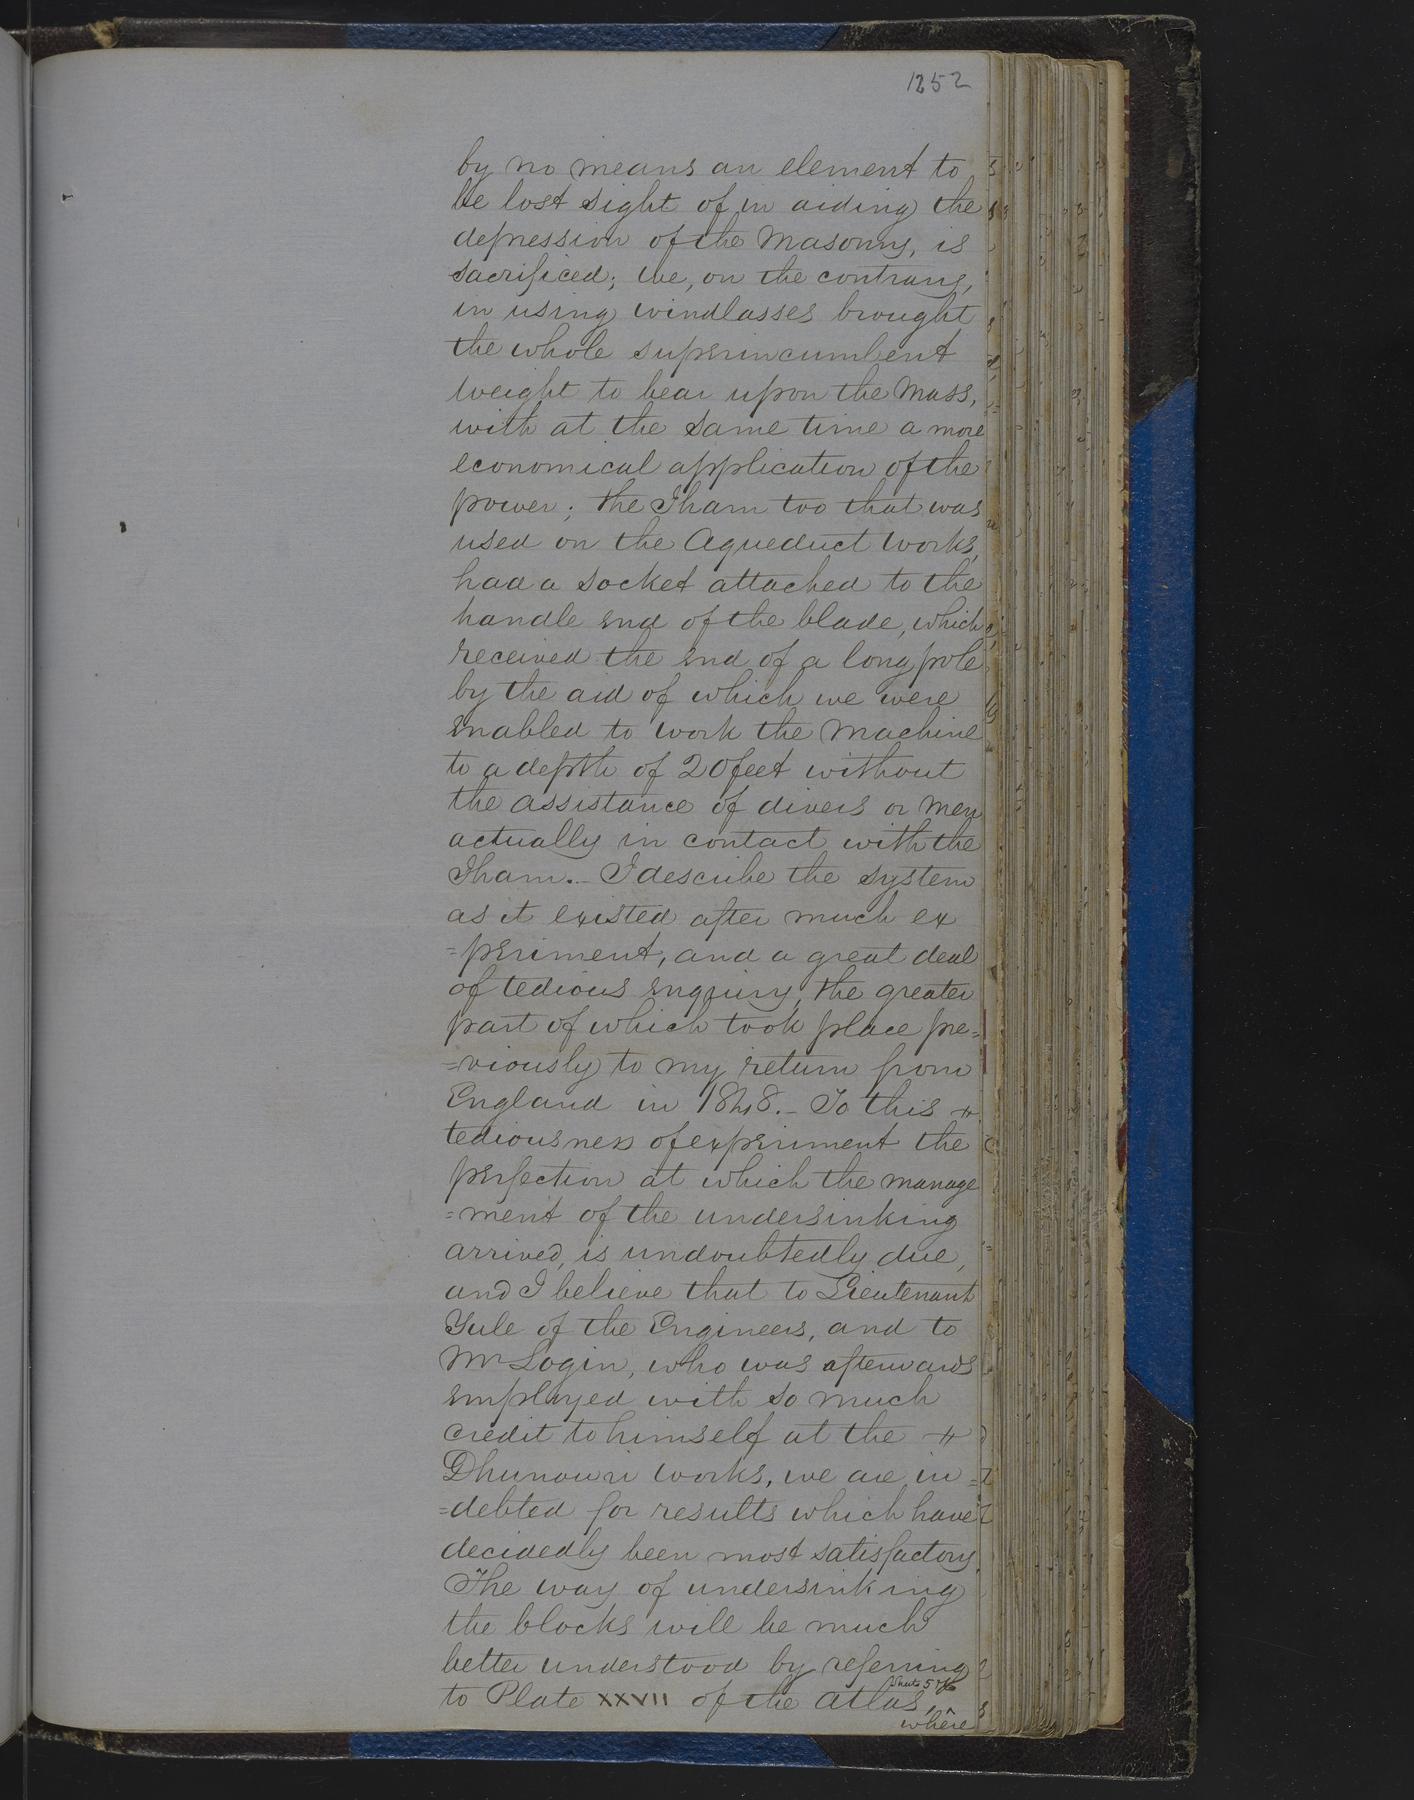 1252
by no means an element to
be lost sight of in aiding the
depression of the Masonry, is
sacrificed; we, on the contrary,
in using windlasses brought
the whole superincumbent
weight to bear upon the Mass,
with at the same time a more
economical application of the
power; the Jham too that was
used on the Aqueduct works,
had a socket attached to the
handle end of the blade, which
received the end of a long pole
by the aid of which we were
enabled to work the Machine
to a depth of 20 feet without
the assistance of divers or men
actually in contact with the
Jham.. I describe the system
as it existed after much ex
=periment, and a great deal
of tedious enquiry, the greater
part of which took place pre=
=viously to my return from
England in 1848.- To this
tediousness of experiment the
perfection at which the manage
=ment of the undersinking
arrived, is undoubtedly due,
and I believe that to Lieutenant
Yule of the Engineers, and to
Mr Login, who was afterwards
employed with so much
credit to himself at the
Dhunowri works, we are in=
=debted for results which have
decidedly been most satisfactory
The way of undersinking
the blocks will be much
better understood by referring
to Plate XXVII of the atlas,
where